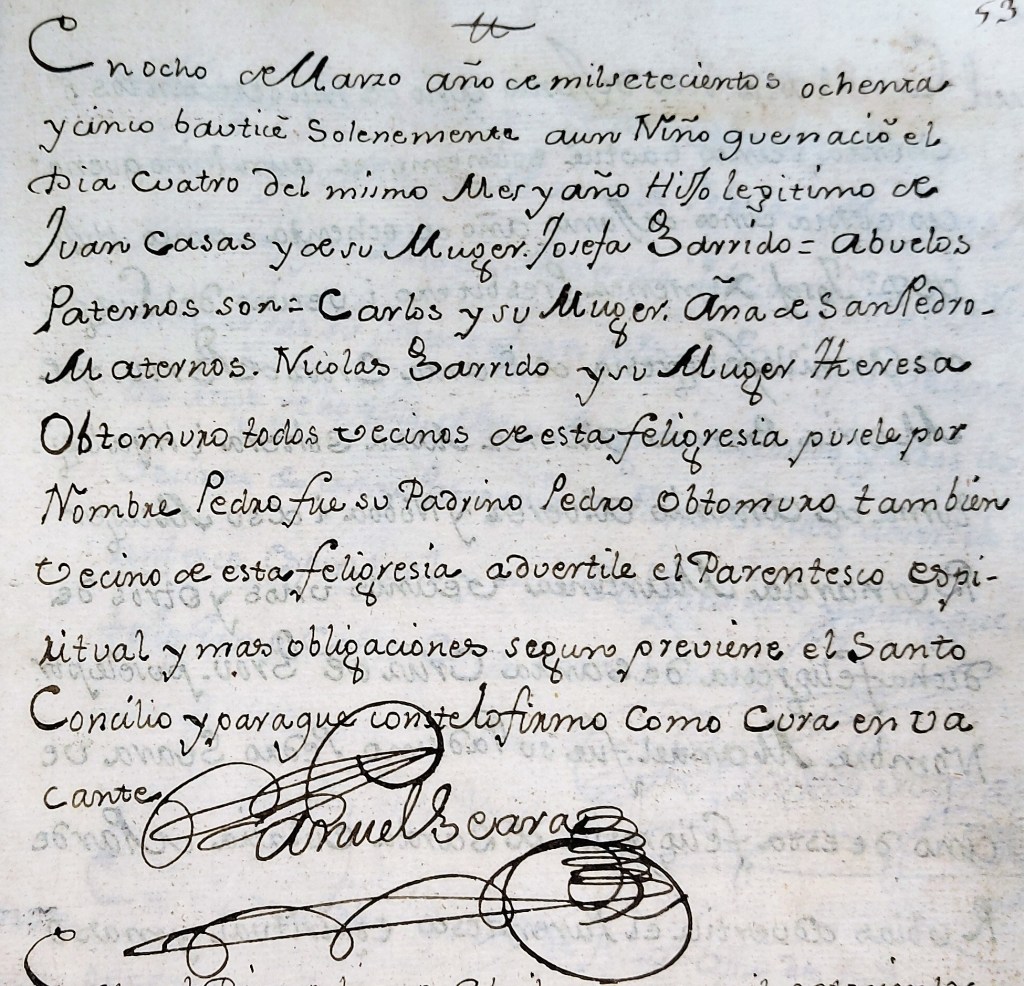 53
En ocho de Marzo año de mil setecientos ochenta
y cinco bautice Solenemente a un Niño que nació el
Dia Cuatro del mismo Mes y año Hijo legitimo de
Juan Casas y de su Muger. Josefa Garrido = abuelos
Paternos son = Carlos y su Muger. Aña de San Pedro -
Maternos. Nicolas Garrido y su Muger Theresa
Obtomuro todos vecinos de esta feligresia pusele por
Nombre Pedro fue su Padrino Pedro Obtomuro tambien
vecino de esta feligresia advertile el Parentesco espi-
ritual y mas obligaciones segun previene el Santo
Concilio y para que conste lo firmo Como Cura en va
cante
Manuel